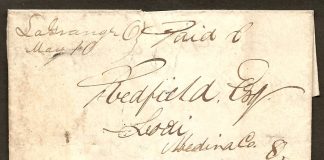 LaGrange O. Paid 6
May 10
Redfield, Esq.
Lodi
Medina Co. 8.